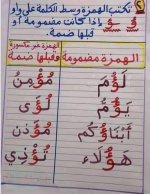 تكتب الهمزة وسط الكلمة على واو
إذا كانت مضمومة أو
قبلها ضمة.
الهمزة مضمومة
الهمزة غير مكسورة وقبلها ضمة
يَؤُمُّ
مُؤْمِنٌ
لُؤَي
أَبْنَاؤُكُم
مُؤَذن
هَؤُلَاء
تُؤْذِي